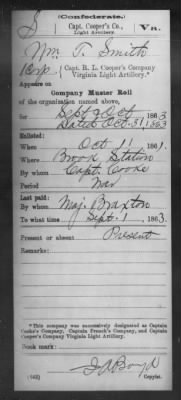 (Confederate.)
S | Capt. Cooper's Co., Light Artillery. | Va.
Wm. T. Smith
Corp., Capt. R. L. Cooper's Company
Virginia Light Artillery.*
Appears on
Company Muster Roll
of the organization named above,
for Sept & Oct, 1863
Dated Oct. 31, 1863
Enlisted:
When Oct 11, 1861.
Where Brook Station
By whom Capt. Cooke
Period War
Last paid:
By whom Maj. Braxton
To what time Sept. 1, 1863.
Present or absent Present
Remarks:
*This company was successively designated as Captain
Cooke's Company, Captain French's Company, and Captain
Cooper's Company Virginia Light Artillery.
Book mark:
(642)
Copyist.